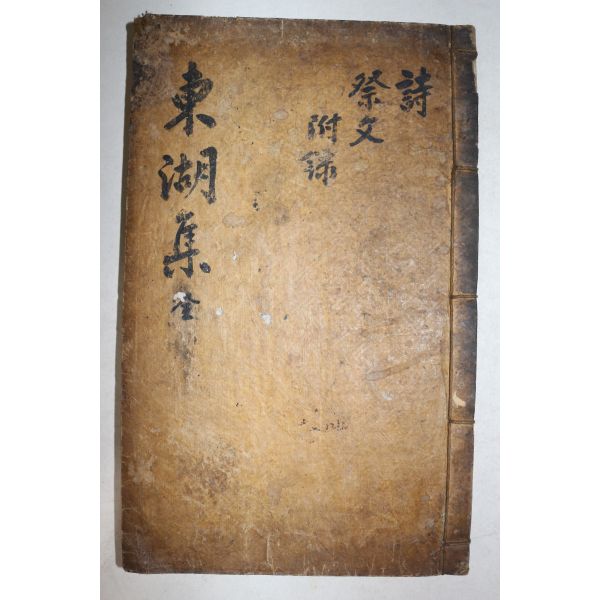 詩
祭文
附録
東湖集 全